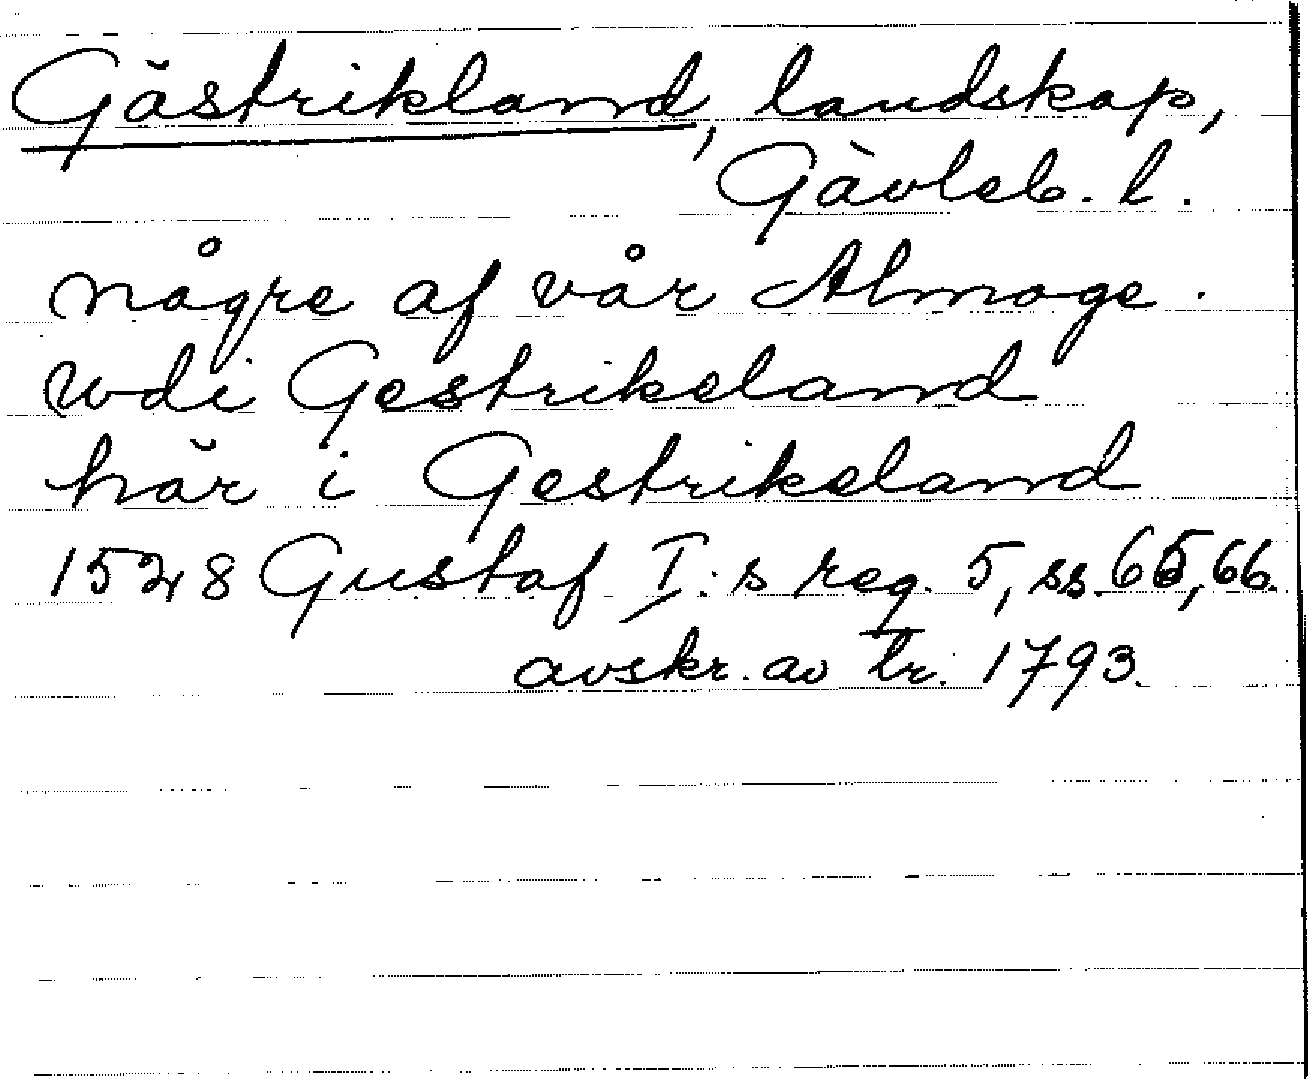 Gästrikland, landskap,
Gävleb. l.
någre af vår Almoge.
wdi Gestrikeland
här i Gestrikeland
1528 Gustaf I:s reg. 5, ss. 65, 66.
avskr. av tr. 1793.